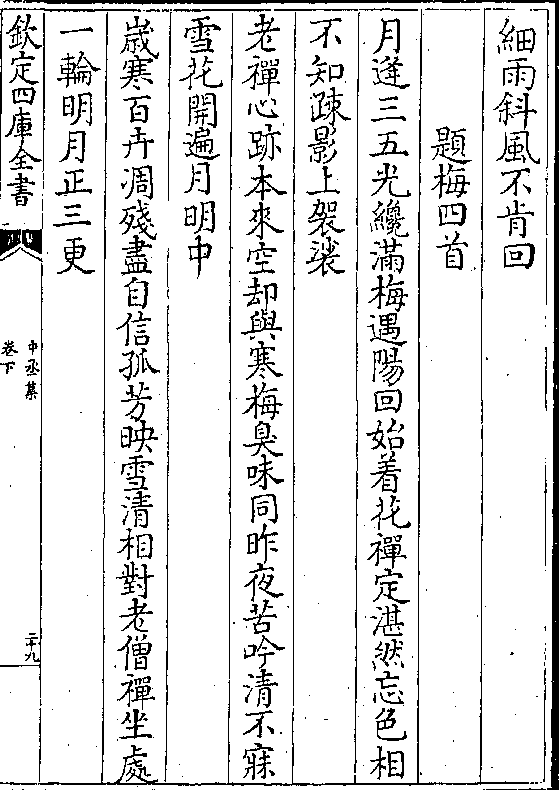 細雨斜風不肯回
題梅四首
月逢三五光纔滿梅遇陽回始着花禪定湛然忘色相
不知疎影上袈裟
老禪心跡本來空却與寒梅臭味同昨夜苦吟清不寐
雪花開遍月明中
歳寒百卉凋殘盡自信孤芳映雪清相對老僧禪坐處
一輪明月正三更
欽定四庫全書
中丞集
卷下
二十九